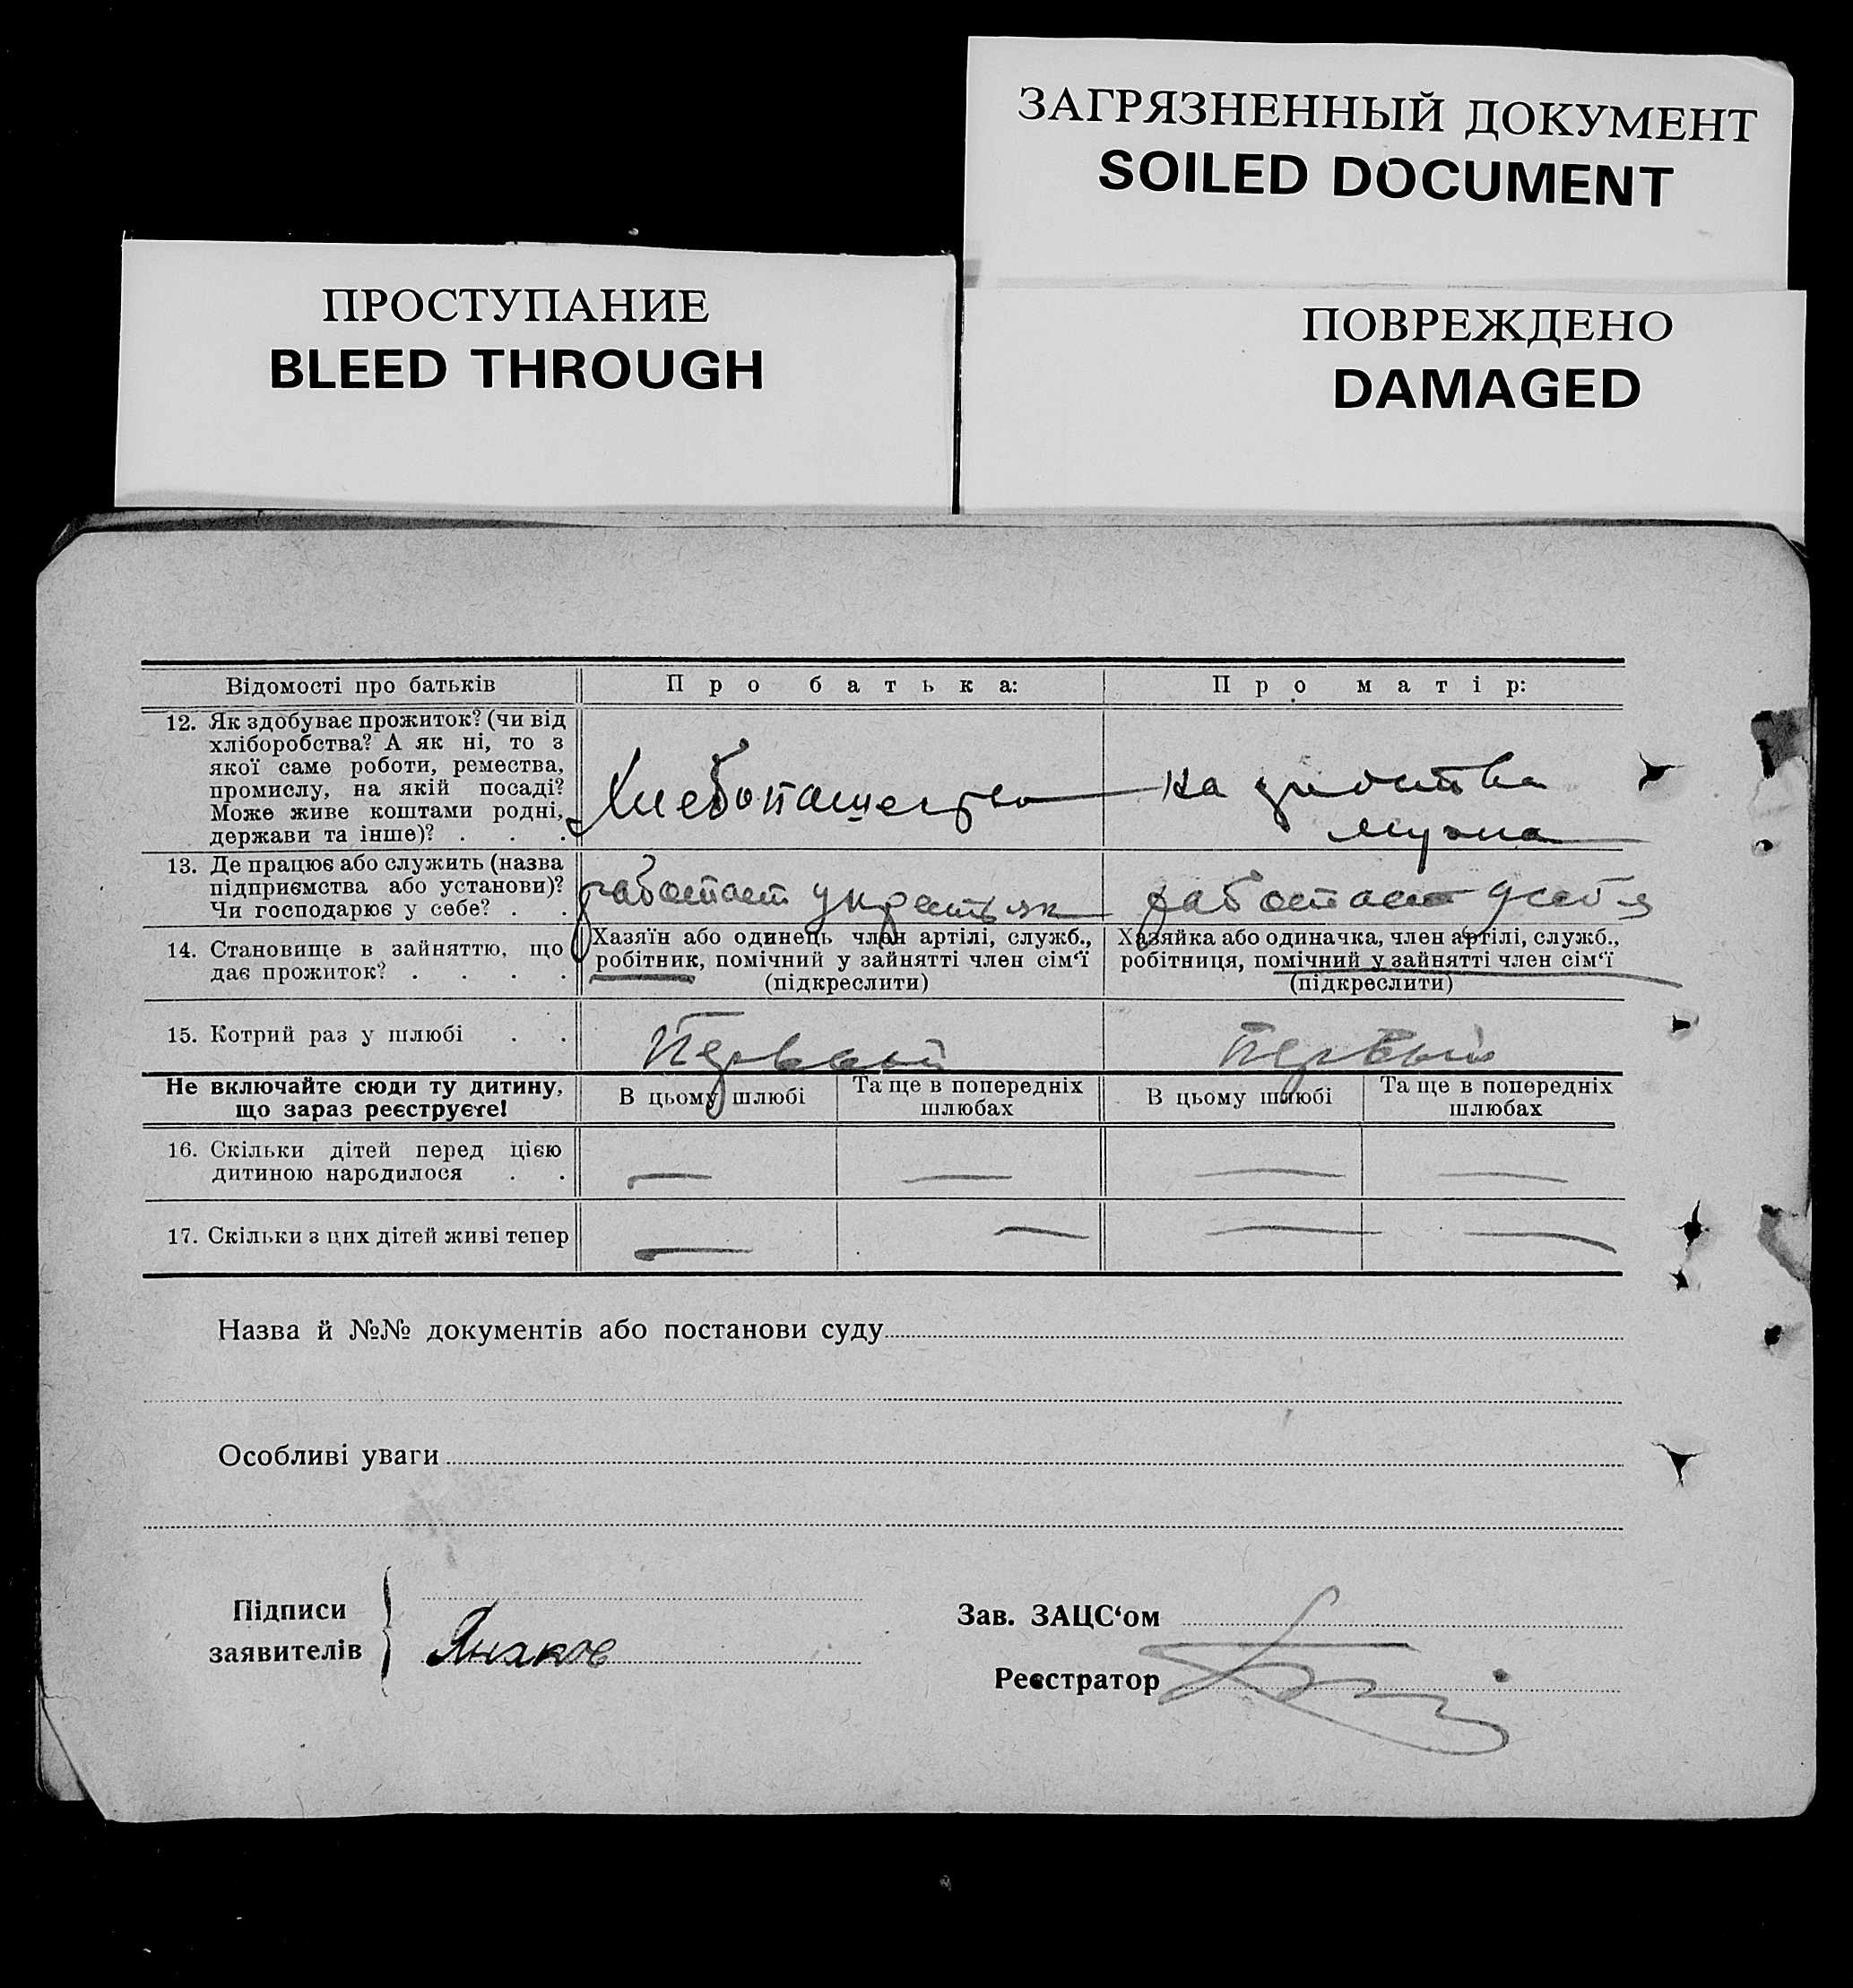 ЗАГРЯЗНЕННЫЙ ДОКУМЕНТ
SOILED DOCUMENT
ПРОСТУПАНИЕ
BLEED THROUGH
ПОВРЕЖДЕНО
DAMAGED
Відомості про батьків
Про батька:
Про матір:
12. Як здобуває прожиток? (чи від
хліборобства? А як ні, то з
якої саме роботи, ремества,
промислу, на якій посаді?
Може живе коштами родні,
держави та інше)? . . .
Хлебопашество
на
мужа
13. Де працює або служить (назва
підприємства або установи)?
Чи господарює у себе? . .
работает у крестьян
работает у себя
14. Становище в зайняттю, що
дає прожиток? . . . .
Хазяїн або одинець член артілі, служб.,
робітник, помічний у зайнятті член сім‘ї
(підкреслити)
Хазяйка або одиначка, член артілі, служб.,
робітниця, помічний у зайнятті член сім‘ї
(підкреслити)
15. Котрий раз у шлюбі . .
Первый
Первый
Не включайте сюди ту дитину,
що зараз реєструєте!
В цьому шлюбі
Та ще в попередніх
шлюбах
В цьому шлюбі
Та ще в попередніх
шлюбах
16. Скільки дітей перед цією
дитиною народилося . .
— — — —
17. Скільки з цих дітей живі тепер
— — — —
Назва й №№ документів або постанови суду
Особливі уваги
Підписи
заявителів
Зав. ЗАЦС‘ом
Реєстратор